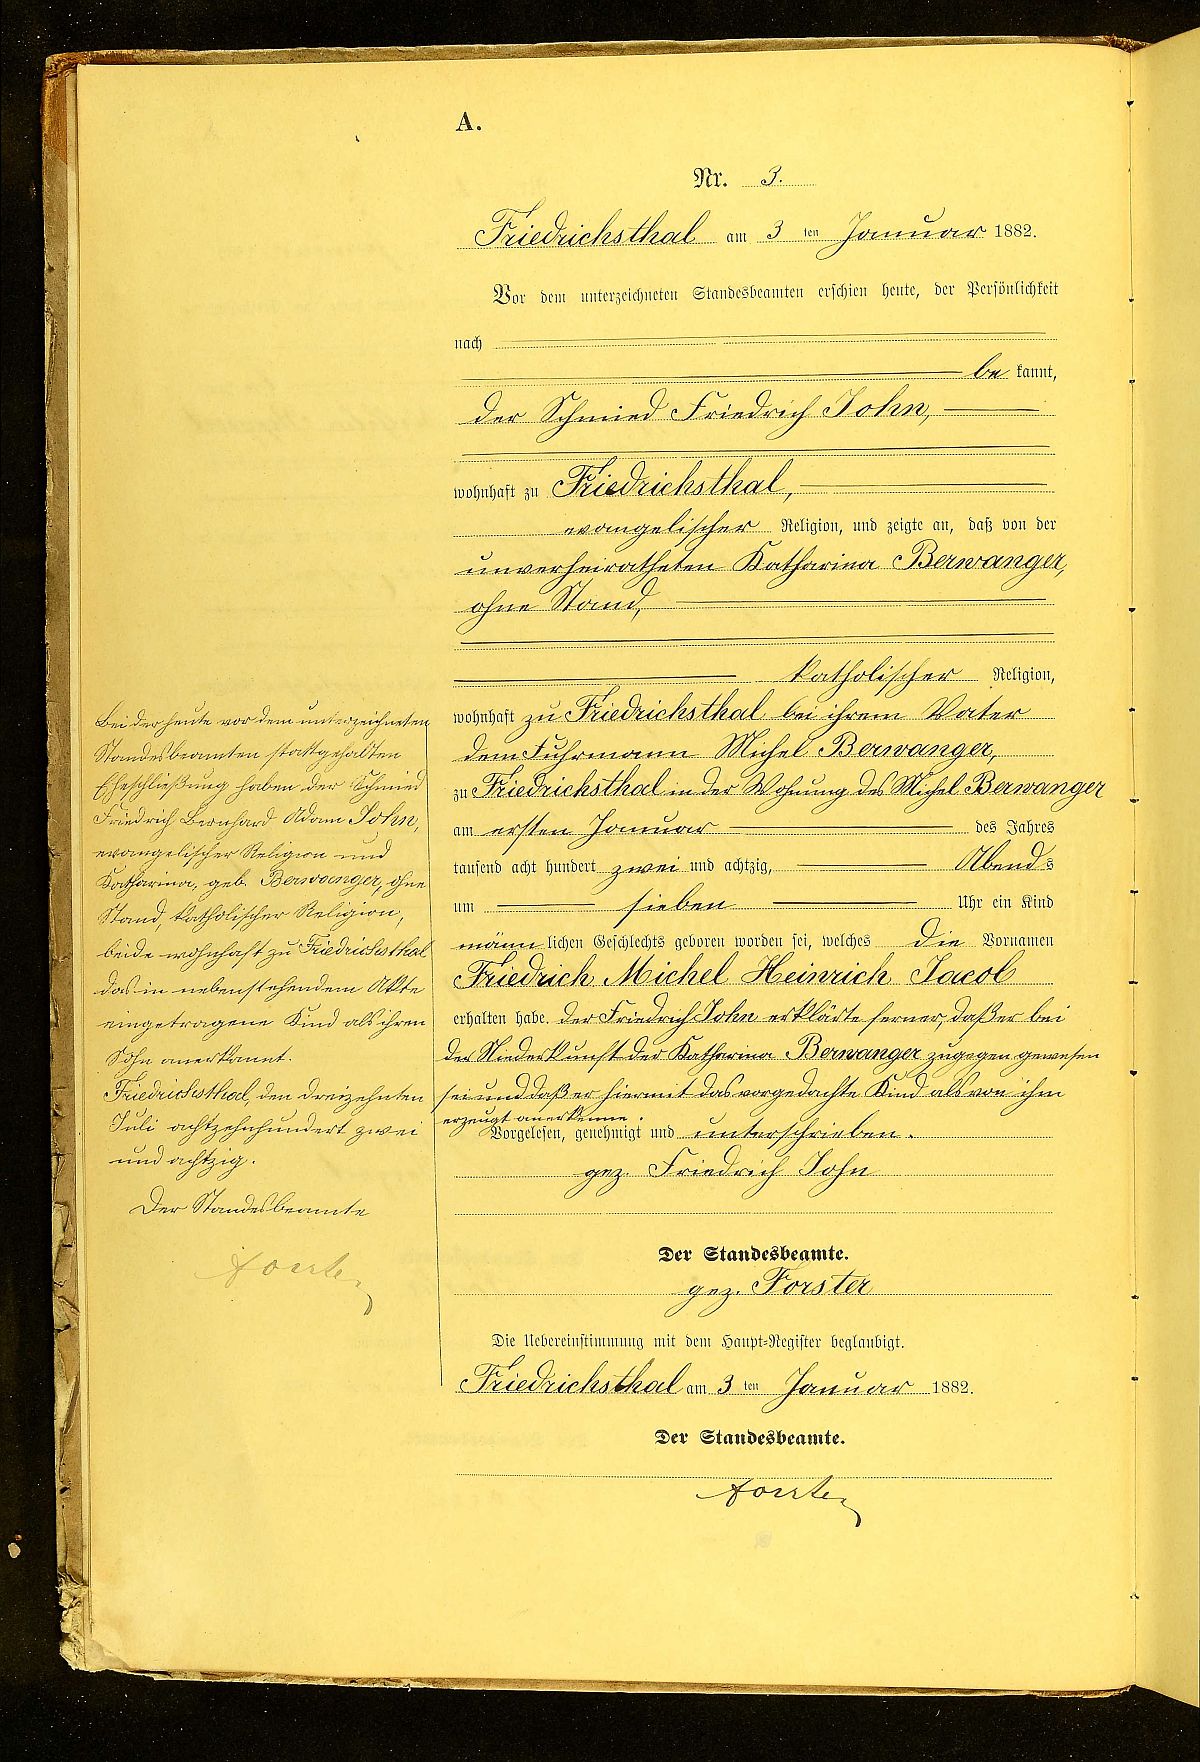 A.
Nr. 3.
Friedrichsthal am 3 ten Januar 1882.
Vor dem unterzeichneten Standesbeamten erschien heute, der Persönlichkeit
nach
be kannt,
der Schmied Friedrich John,
wohnhaft zu Friedrichsthal,
evangelischer Religion, und zeigte an, daß von der
unverheiratheten Katharina Berwanger,
ohne Stand,
katholischer Religion,
wohnhaft zu Friedrichsthal bei ihrem Vater
dem Fuhrmann Michel Berwanger,
zu Friedrichsthal in der Wohnung des Michel Berwanger
am ersten Januar des Jahres
tausend acht hundert zwei und achtzig, Abends
um sieben Uhr ein Kind
männlichen Geschlechts geboren worden sei, welches die Vornamen
Friedrich Michel Heinrich Jacob
erhalten habe. Der Friedrich John erklärte ferner, daß er bei
der Niederkunft der Katharina Berwanger zugegen gewesen
sei und daß er hiermit das vorgedachte Kind als von ihm
erzeugt anerkenne.
Vorgelesen, genehmigt und unterschrieben.
gez. Friedrich John
Der Standesbeamte.
gez. Forster
Die Uebereinstimmung mit dem Haupt-Register beglaubigt.
Friedrichsthal am 3 ten Januar 1882.
Der Standesbeamte.
Forster
Bei der heute vor dem unterzeichneten
Standesbeamten stattgehabten
Eheschließung haben der Schmied
Friedrich Bernhard Adam John,
evangelischer Religion und
Katharina, geb. Berwanger, ohne
Stand, katholischer Religion,
beide wohnhaft zu Friedrichsthal
das in nebenstehendem Akte
eingetragene Kind als ihren
Sohn anerkannt.
Friedrichsthal, den dreizehnten
Juli achtzehnhundert zwei
und achtzig.
Der Standesbeamte
Forster